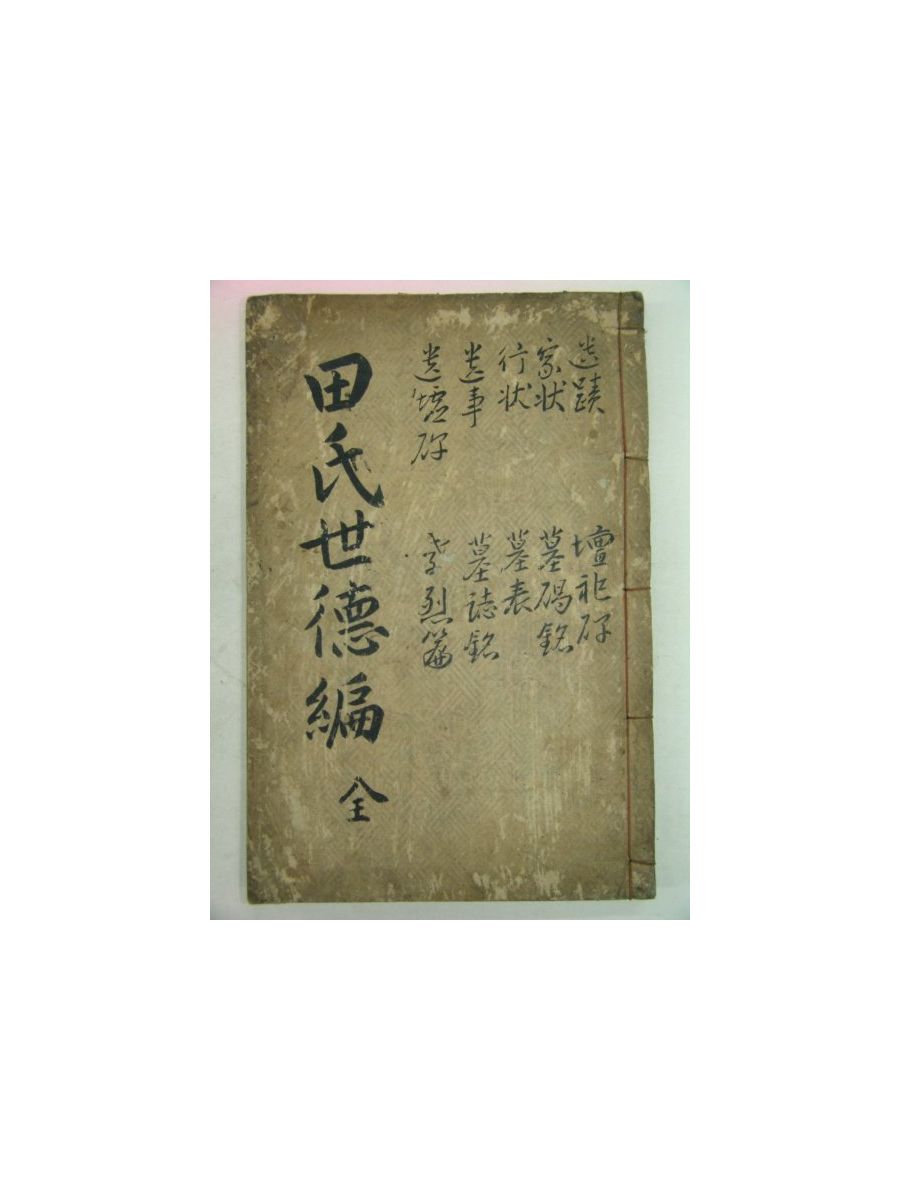 遺蹟
家狀
行狀
遺事
遺墟碑
壇祀碑
墓碣銘
墓表
墓誌銘
孝烈篇
田氏世德編
全